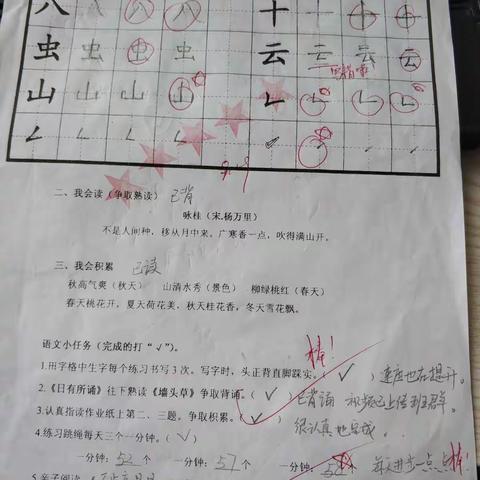 八 八 八 十 十 十 十
虫 虫 虫 虫 云 云 云 云
山 山 山 山 ㄥ ㄥ ㄥ ㄥ
二、我会读（争取熟读） 已背
咏桂（宋.杨万里）
不是人间种，移从月中来。广寒香一点，吹得满山开。
三、我会积累 已读
秋高气爽（秋天） 山清水秀（景色） 柳绿桃红（春天）
春天桃花开，夏天荷花美，秋天桂花香，冬天雪花飘。
语文小任务（完成的打“√”）。
棒！
1.用字格中生字每个练习书写3次。写字时，头正背直脚踩实。（√） 速度也在提升。
2.《日有所诵》往下熟读《墙头草》争取背诵。（√）已背诵 视频已上传到群。
3.认真指读作业纸上第二、三题。争取积累。（√） 很认真地完成。
4.练习跳绳每天三个一分钟。（√）
一分钟：52个 一分钟：57个 一分钟：个 每天进步一点点 棒！
5.亲子阅读